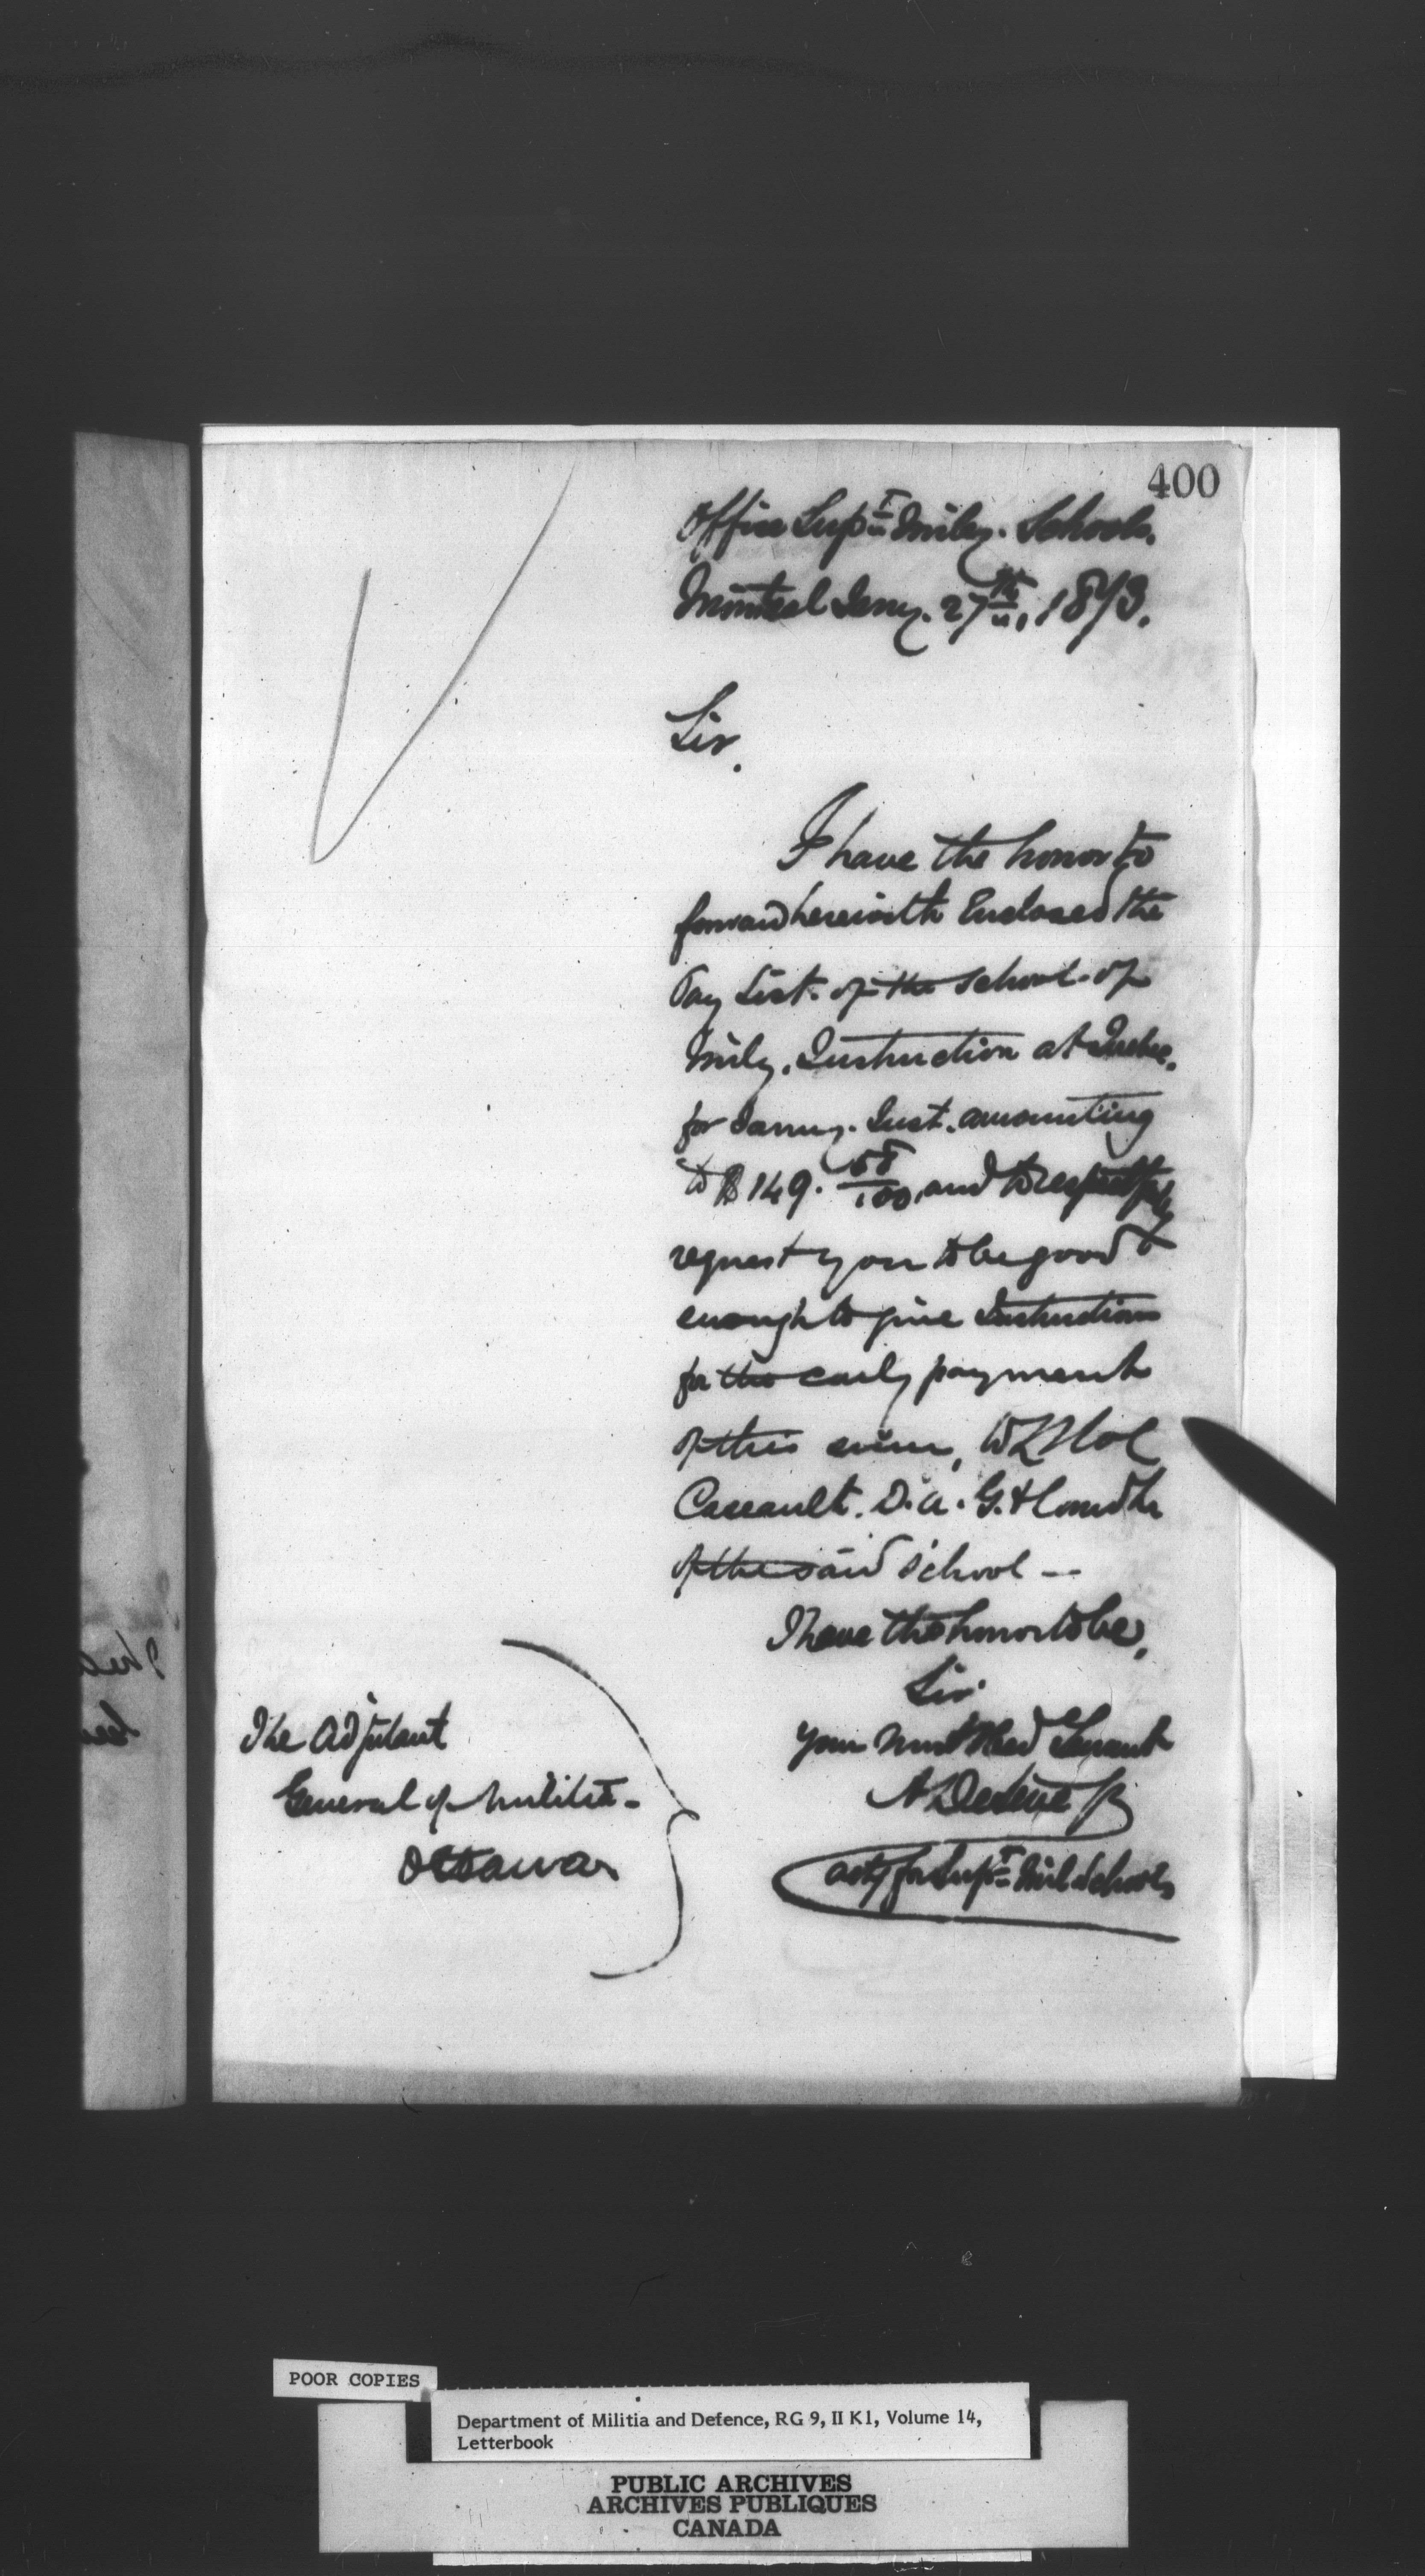 400
Office Sup.t Mily. Schools.
Montreal Jany. 27th, 1873.
Sir.
I have the honor to
forward herewith Enclosed the
Pay List. of the School of
Mily. Instruction at Quebec.
for Jany. Inst. amounting
to $149. 58/100, and to respectfully
request you to be good
enough to give Instructions
for the early payment
of this sum, to Lt Col
Casault. D.A.G. & Comdt
of the said School --
I have the honor to be,
Sir
your most Obed Servant
acty for Supt Mil Schools
The Adjutant
General of Militia -
Ottawa
POOR COPIES
Department of Militia and Defence, RG 9, II K1, Volume 14,
Letterbook
PUBLIC ARCHIVES
ARCHIVES PUBLIQUES
CANADA